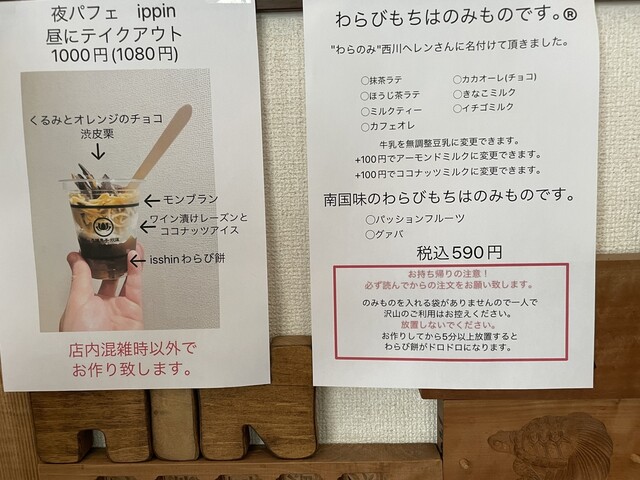 夜パフェ ippin
昼にテイクアウト
1000円(1080円)
くるみとオレンジのチョコ
渋皮栗
モンブラン
ワイン漬けレーズンと
ココナッツアイス
isshinわらび餅
店内混雑時以外で
お作り致します。
わらびもちはのみものです。®
"わらのみ"西川ヘレンさんに名付けて頂きました。
○抹茶ラテ
○ほうじ茶ラテ
○ミルクティー
○カフェオレ
○カカオーレ(チョコ)
○きなこミルク
○イチゴミルク
牛乳を無調整豆乳に変更できます。
+100円でアーモンドミルクに変更できます。
+100円でココナッツミルクに変更できます。
南国味のわらびもちはのみものです。
○パッションフルーツ
○グァバ
税込590円
お持ち帰りの注意！
必ず読んでからの注文をお願い致します。
のみものを入れる袋がありませんので一人で
沢山のご利用はお控えください。
放置しないでください。
お作りしてから5分以上放置すると
わらび餅がドロドロになります。